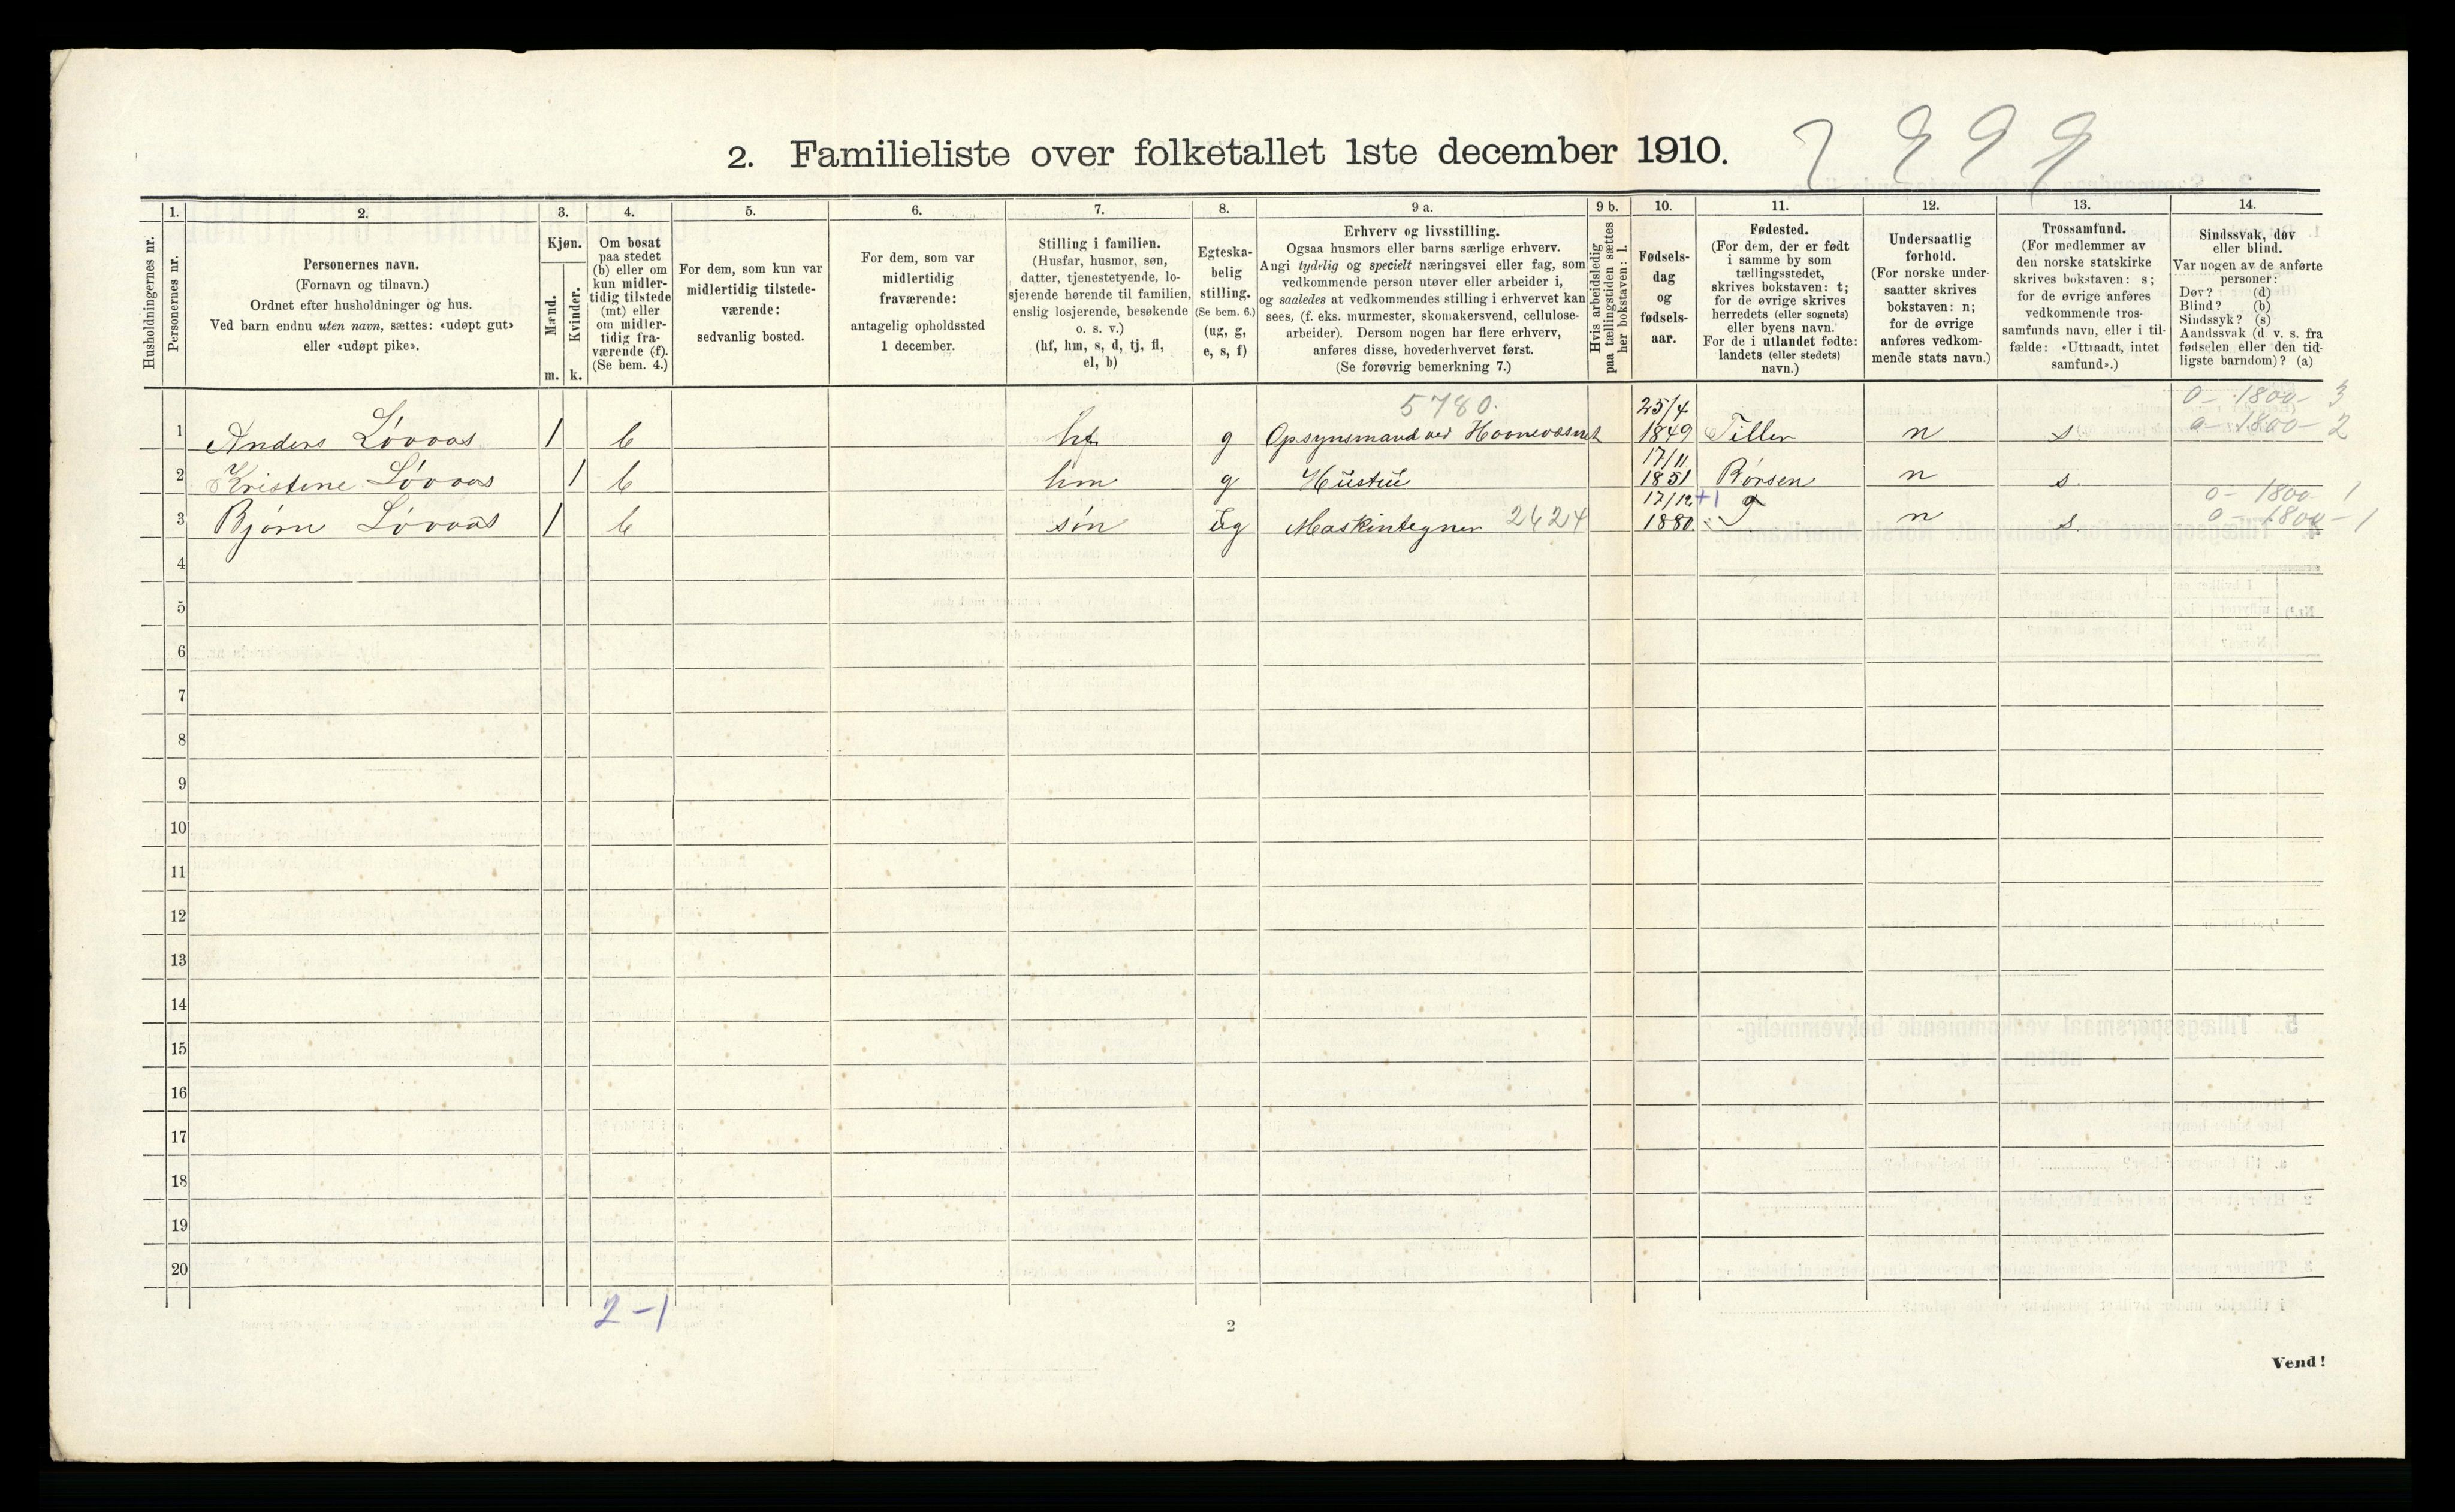 2. Familieliste over folketallet 1ste december 1910.
Husholdningernes nr.
1. Personernes nr.
2. Personernes navn.
(Fornavn og tilnavn.)
Ordnet efter husholdninger og hus.
Ved barn endnu uten navn, sættes: «udøpt gut»
eller «udøpt pike».
3. Kjøn.
Mænd. m.
Kvinder. k.
4. Om bosat
paa stedet
(b) eller om
kun midler-
tidig tilstede
(mt) eller
om midler-
tidig fra-
værende (f).
(Se bem. 4.)
5. For dem, som kun var
midlertidig tilstede-
værende:
sedvanlig bosted.
6. For dem, som var
midlertidig
fraværende:
antagelig opholdssted
1 december.
7. Stilling i familien.
(Husfar, husmor, søn,
datter, tjenestetyende, lo-
sjerende hørende til familien,
enslig losjerende, besøkende
o. s. v.)
(hf, hm, s, d, tj, fl,
el, b)
8. Egteska-
belig
stilling.
(Se bem. 6.)
(ug, g,
e, s, f)
9 a. Erhverv og livsstilling.
Ogsaa husmors eller barns særlige erhverv.
Angi tydelig og specielt næringsvei eller fag, som
vedkommende person utøver eller arbeider i,
og saaledes at vedkommendes stilling i erhvervet kan
sees, (f. eks. murmester, skomakersvend, cellulose-
arbeider). Dersom nogen har flere erhverv,
anføres disse, hovederhvervet først.
(Se forøvrig bemerkning 7.)
9 b. Hvis arbeidsledig
paa tællingstiden sættes
her bokstaven: l.
10. Fødsels-
dag
og
fødsels-
aar.
11. Fødested.
(For dem, der er født
i samme by som
tællingsstedet,
skrives bokstaven: t;
for de øvrige skrives
herredets (eller sognets)
eller byens navn.
For de i utlandet fødte:
landets (eller stedets)
navn.)
12. Undersaatlig
forhold.
(For norske under-
saatter skrives
bokstaven: n;
for de øvrige
anføres vedkom-
mende stats navn.)
13. Trossamfund.
(For medlemmer av
den norske statskirke
skrives bokstaven: s;
for de øvrige anføres
vedkommende tros-
samfunds navn, eller i til-
fælde: «Uttraadt, intet
samfund».)
14. Sindssvak, døv
eller blind.
Var nogen av de anførte
personer:
Døv? (d)
Blind? (b)
Sindssyk? (s)
Aandssvak (d. v. s. fra
fødselen eller den tid-
ligste barndom)? (a)
5780. 25/4 0- 1800- 3
1 Anders Løvaas 1 b hf g Opsynsmand ved Havnevæsnet 1849 Tiller n s 0-1800- 2
17/11
2 Kristine Løvaas 1 b hm g Hustru 1851 Børsen n s
17/12 +1 0- 1800- 1
3 Bjørn Løvaas 1 b søn ug Maskintegner 2424 1880. n s 0-1800-1
4
5
6
7
8
9
10
11
12
13
14
15
16
17
18
19
20
2-1
2
Vend!